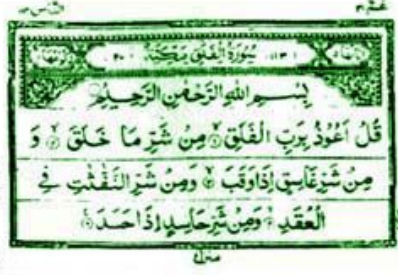 سُورَةُ الْفَلَقِ مَكِّيَّةٌ
بِسْمِ اللهِ الرَّحْمٰنِ الرَّحِيْمِ
قُلْ اَعُوْذُ بِرَبِّ الْفَلَقِ ۝۱ مِنْ شَرِّ مَا خَلَقَ ۝۲ وَ
مِنْ شَرِّ غَاسِقٍ اِذَا وَقَبَ ۝۳ وَمِنْ شَرِّ النَّفّٰثٰتِ فِي
الْعُقَدِ ۝۴ وَمِنْ شَرِّ حَاسِدٍ اِذَا حَسَدَ ۝۵